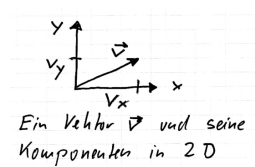 y
v⃗
Vy
x
Vx
Ein Vektor v⃗ und seine
Komponenten in 2D